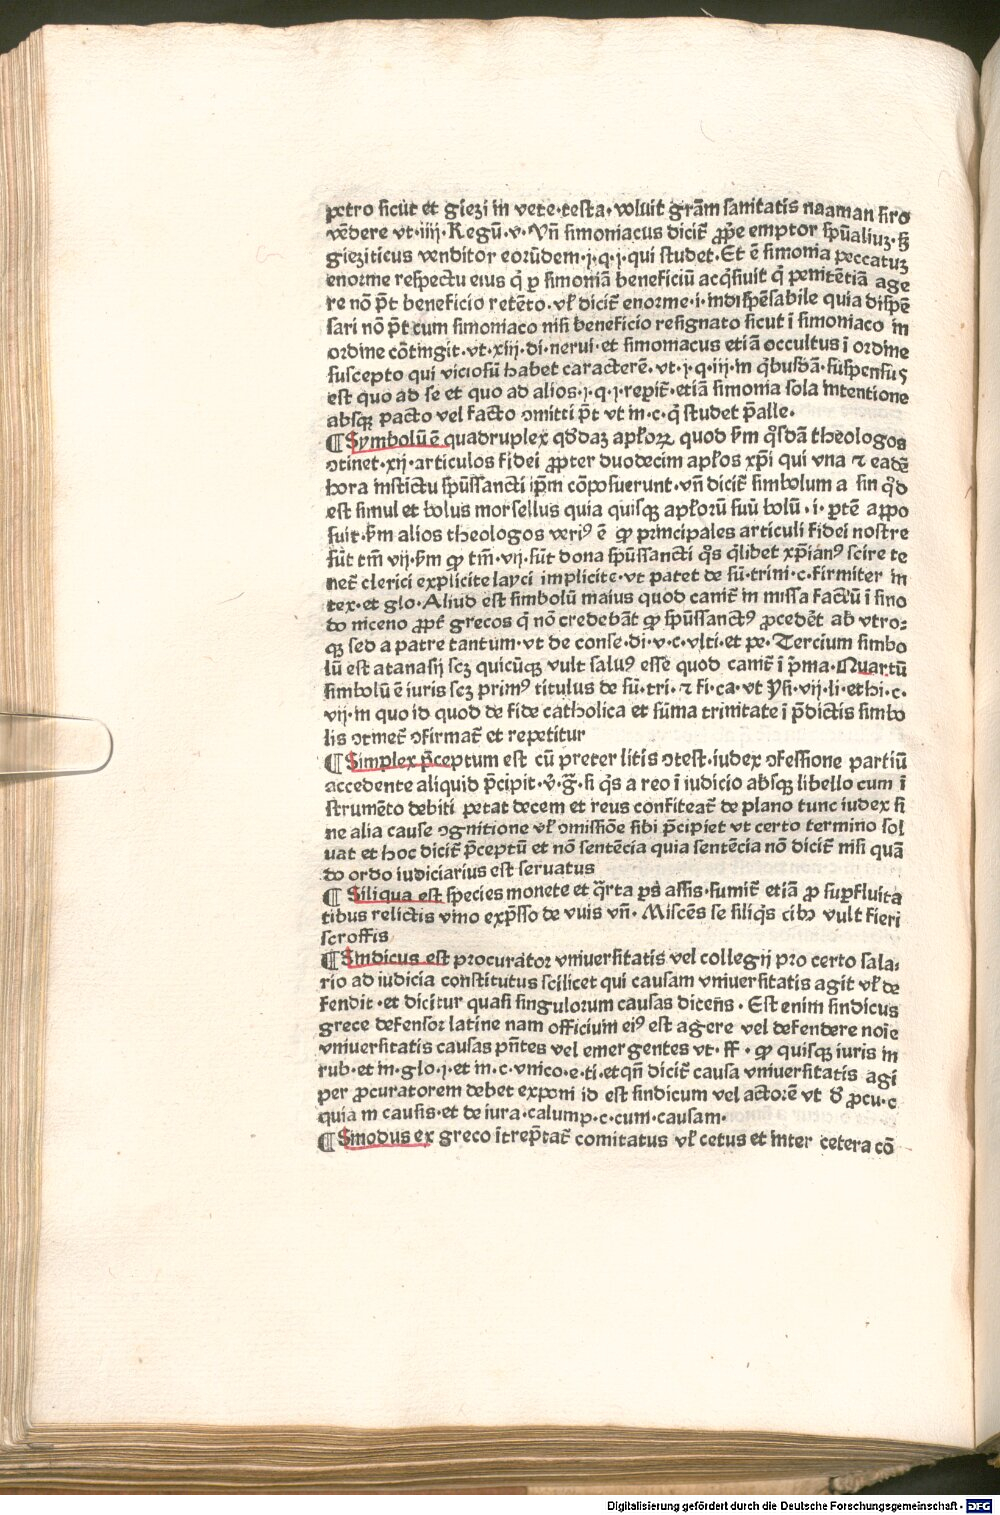 petro sicut et giezi in vete·testa·voluit gr̄am sanitatis naaman siro
vēdere vt·iiij·Regū·v·Vn̄ simoniacus dicit̄ ꝓp̄e emptor sp̄ualiuz·s̄ꝫ
gieziticus venditor eorūdem·j·q·j·qui studet·Et ē simonia peccatuz
enorme respectu eius q̄ ꝑ simoniā beneficiū acq̄siuit q̄ penitētiā age
re nō p̄t beneficio retēto·vl̄ dicit̄ enorme·i·indispēsabile quia dispē
sari nō p̄t cum simoniaco nisi beneficio resignato sicut ī simoniaco in
ordine cōtingit·vt·xiij·di·nerui·et simoniacus etiā occultus ī ordine
suscepto qui viciosū habet caracterē·vt·j·q·iij·in q̄busdā·suspensus
est quo ad se et quo ad alios·j·q·j·repit̄·etiā simonia sola intentione
absqꝫ pacto vel facto ꝯmitti p̄t vt in·c·q̄ studet p̄alle·
¶ Symbolū ē quadruplex qd̄daz apl̄oꝝ quod s̄m q̄sdā theologos
ꝯtinet·xij·articulos fidei ꝓpter duodecim apl̄os xp̄i qui vna ⁊ eadē
hora instictu sp̄ussancti ip̄m cōposuerunt·vn̄ dicit̄ simbolum a sin qd̄
est simul et bolus morsellus quia quisqꝫ apl̄orū suū bolū·i·ꝑtē appo
suit·s̄m alios theologos veriꝰ ē ꝙ principales articuli fidei nostre
sūt tm̄ vij·s̄m ꝙ tm̄·vij·sūt dona sp̄ussancti q̄s q̄libet xp̄ianꝰ scire te
net̄ clerici explicite layci implicite·vt patet de sū·trini·c·firmiter in
tex·et glo·Aliud est simbolū maius quod canit̄ in missa factū ī sino
do niceno ꝓpt̄ grecos q̄ nō credebāt ꝙ sp̄ussanctꝰ ꝓcedēt ab vtro-
qꝫ sed a patre tantum·vt de conse·di·v·c·vlti·et pe·Tercium simbo
lū est atanasij scꝫ quicūqꝫ vult saluꝰ esse quod canit̄ ī p̄ma·Quartū
simbolū ē iuris scꝫ primꝰ titulus de sū·tri·⁊ fi·ca·vt p̄si·vij·li·ethi·c·
vij·in quo id quod de fide catholica et sūma trinitate ī p̄dictis simbo
lis ꝯtinet̄ ꝯfirmat̄ et repetitur
¶ Simplex p̄ceptum est cū preter litis ꝯtest·iudex ꝯfessione partiū
accedente aliquid p̄cipit·v̄·ḡ·si q̄s a reo ī iudicio absqꝫ libello cum ī
strumēto debiti petat decem et reus confiteat̄ de plano tunc iudex si
ne alia cause ꝯgnitione vl̄ ꝯmissiōe sibi p̄cipiet vt certo termino sol
uat et hoc dicit̄ p̄ceptū et nō sentēcia quia sentēcia nō dicit̄ nisi quā
do ordo iudiciarius est seruatus
¶ Siliqua est species monete et q̄rta ps̄ assis·sumit̄ etiā ꝓ suꝑfluita
tibus relictis vino exp̄sso de vuis vn̄·Miscēs se siliqīs cibꝫ vult fieri
scroffis
¶ Sindicus est procurator vniuersitatis vel collegij pro certo sala-
rio ad iudicia constitutus scilicet qui causam vniuersitatis agit vl̄ de
fendit·et dicitur quasi singulorum causas dicens̄·Est enim sindicus
grece defensor latine nam officium eiꝰ est agere vel defendere noīe
vniuersitatis causas pn̄tes vel emergentes vt·ff·ꝙ quisqꝫ iuris in
rub·et in·glo·j·et in·c·vnico·e·ti·et qn̄ dicit̄ causa vniuersitatis agi
per ꝓcuratorem debet exponi id est sindicum vel actorē vt d̄ ꝓcu·c
quia in causis·et de iura·calump·c·cum·causam·
¶ Sinodus ex greco īterp̄tat̄ comitatus vl̄ cetus et inter cetera cō
Digitalisierung gefördert durch die Deutsche Forschungsgemeinschaft - DFG